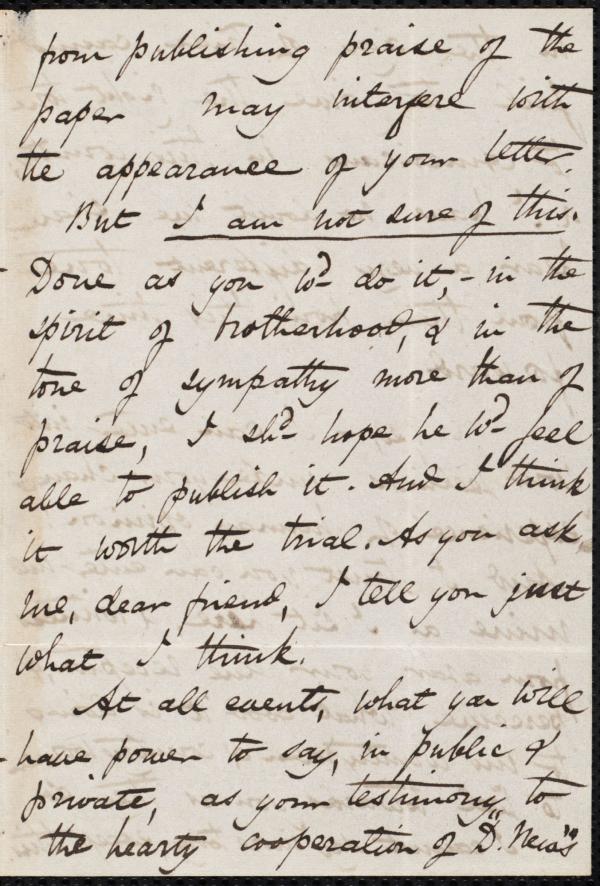 from publishing praise of the
paper may interfere with
the appearance of your letter.
But I am not sure of this.
Done as you wd do it, - in the
spirit of brotherhood, & in the
tone of sympathy more than of
praise, I shd hope he wd feel
able to publish it. And I think
it worth the trial. As you ask
me, dear friend, I tell you just
what I think.
At all events, what you will
have power to say, in public &
private, as your testimony to
the hearty cooperation of "D. News"